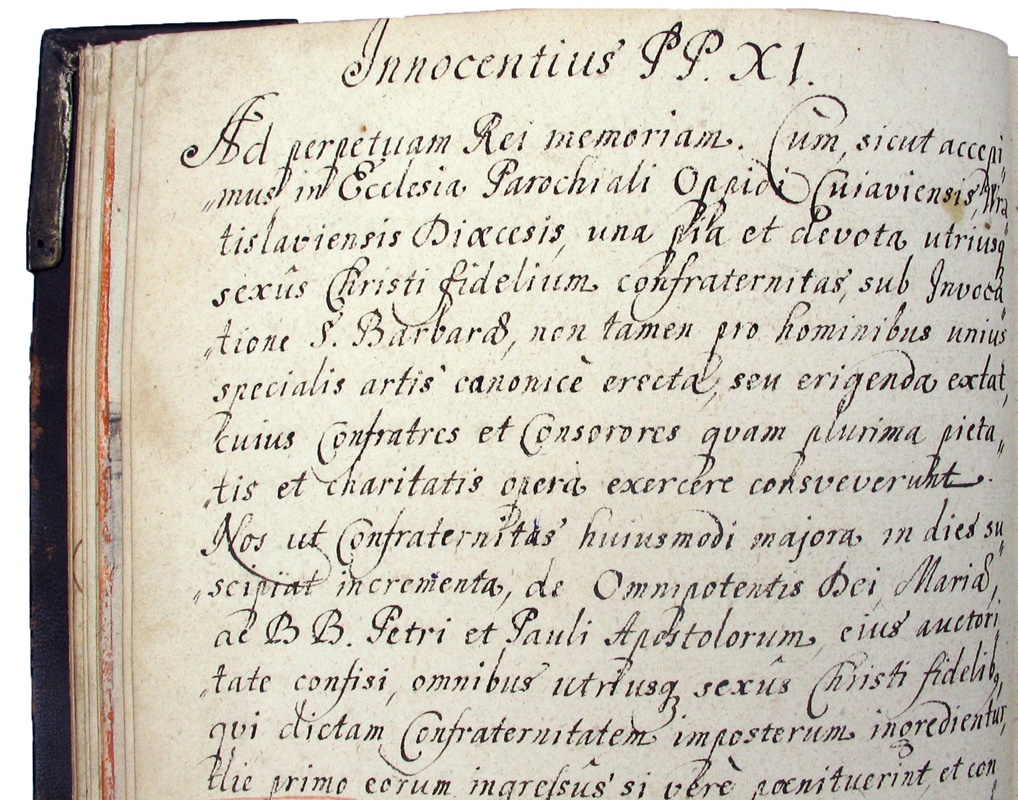 Innocentius PP. XI.
Ad perpetuam Rei memoriam. Cùm, sicut accepi„
„mus in Ecclesia Parochiali Oppidi Cuiaviensis, Wra„
tislaviensis Diœcesis, una pia et devota utriusq
sexûs Christi fidelium confraternitas, sub Invoca„
„tione S. Barbaræ, non tamen pro hominibus unius
specialis artis canonicè erecta, seu erigenda extat,
cuius Confratres et Consorores qvam plurima pieta„
„tis et charitatis opera exercere consveverunt.
Nos ut Confraternitas huiusmodi majora in dies su„
„scipiat incrementa, de Omnipotentis Dei, Mariæ,
ac BB. Petri et Pauli Apostolorum, eius auctori„
„tate confisi, omnibus utriusq sexûs Christi fidelibq,
qvi dictam Confraternitatem imposterum ingredientur,
die primo eorum ingressûs si verè pœnituerint, et con